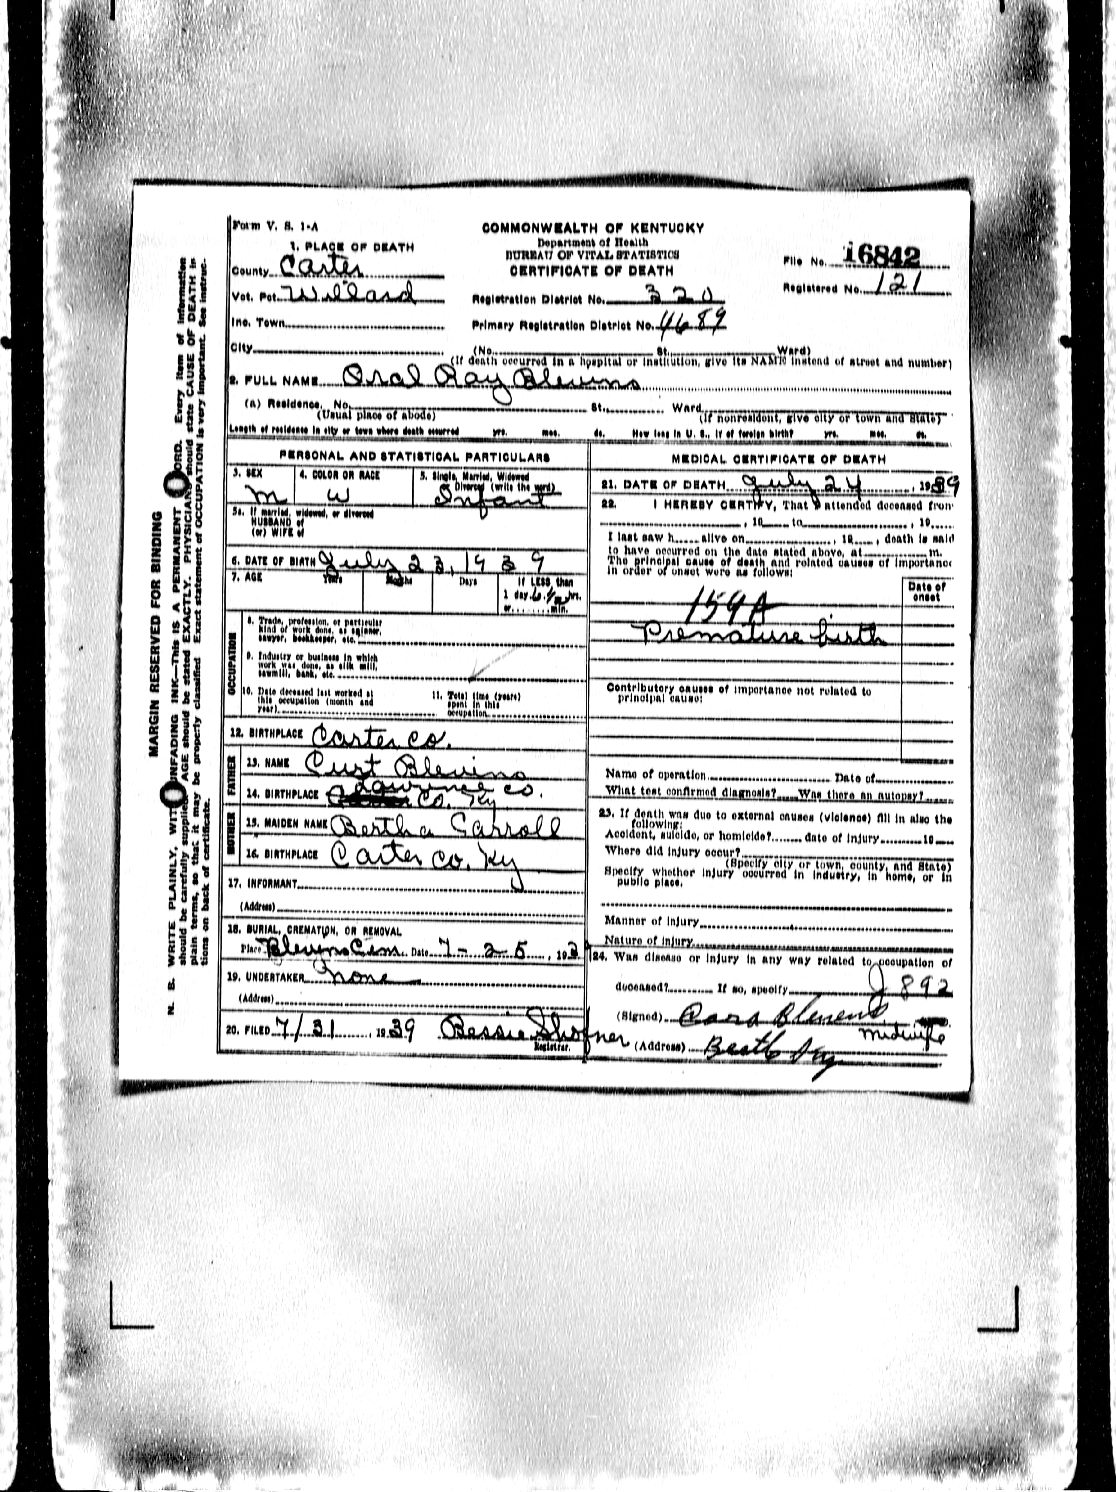 Form V. S. 1-A
COMMONWEALTH OF KENTUCKY
Department of Health
BUREAU OF VITAL STATISTICS
CERTIFICATE OF DEATH
File No. 16842
Registered No. 121
1. PLACE OF DEATH
County Carter
Vot. Pct. Willard
Registration District No. 320
Inc. Town
Primary Registration District No. 4689
City (No. St. Ward)
(If death occurred in a hospital or institution, give its NAME instead of street and number)
2. FULL NAME Oral Ray Blevins
(a) Residence, No. St., Ward
(Usual place of abode) (If nonresident, give city or town and State)
Length of residence in city or town where death occurred yrs. mos. ds. How long in U. S., if of foreign birth? yrs. mos. ds.
PERSONAL AND STATISTICAL PARTICULARS
3. SEX M
4. COLOR OR RACE W
5. Single, Married, Widowed
Divorced (write the word)
Infant
5a. If married, widowed, or divorced
HUSBAND of
(or) WIFE of
6. DATE OF BIRTH July 23, 1939
7. AGE Years Months Days If LESS than
1 day, hrs.
or min.
OCCUPATION
8. Trade, profession, or particular
kind of work done, as spinner,
sawyer, bookkeeper, etc.
9. Industry or business in which
work was done, as silk mill,
sawmill, bank, etc.
10. Date deceased last worked at
this occupation (month and
year)
11. Total time (years)
spent in this
occupation
12. BIRTHPLACE Carter Co.
FATHER
13. NAME Curt Blevins
14. BIRTHPLACE Lawrence Co.
Co. Ky
MOTHER
15. MAIDEN NAME Bertha Carroll
16. BIRTHPLACE Carter Co. Ky
17. INFORMANT
(Address)
18. BURIAL, CREMATION, OR REMOVAL
Place Blevins Cem. Date 7-25, 193
19. UNDERTAKER None
(Address)
20. FILED 7/31, 1939 Bessie Shofner
Registrar.
MEDICAL CERTIFICATE OF DEATH
21. DATE OF DEATH July 24, 1939
22. I HEREBY CERTIFY, That I attended deceased from
, 19 to , 19
I last saw h alive on , 19 , death is said
to have occurred on the date stated above, at m.
The principal cause of death and related causes of importance
in order of onset were as follows:
Date of
onset
159A
Premature birth
Contributory causes of importance not related to
principal cause:
Name of operation Date of
What test confirmed diagnosis? Was there an autopsy?
23. If death was due to external causes (violence) fill in also the
following:
Accident, suicide, or homicide? date of injury 19
Where did injury occur?
(Specify city or town, county, and State)
Specify whether injury occurred in industry, in home, or in
public place.
Manner of injury
Nature of injury
24. Was disease or injury in any way related to occupation of
deceased? If so, specify J 892
(Signed) Blevins
Midwife
(Address)
MARGIN RESERVED FOR BINDING
N. B. WRITE PLAINLY, WITH UNFADING INK—THIS IS A PERMANENT RECORD. Every item of information
should be carefully supplied. AGE should be stated EXACTLY. PHYSICIANS should state CAUSE OF DEATH in
plain terms, so that it may be properly classified. Exact statement of OCCUPATION is very important. See instruc-
tions on back of certificate.